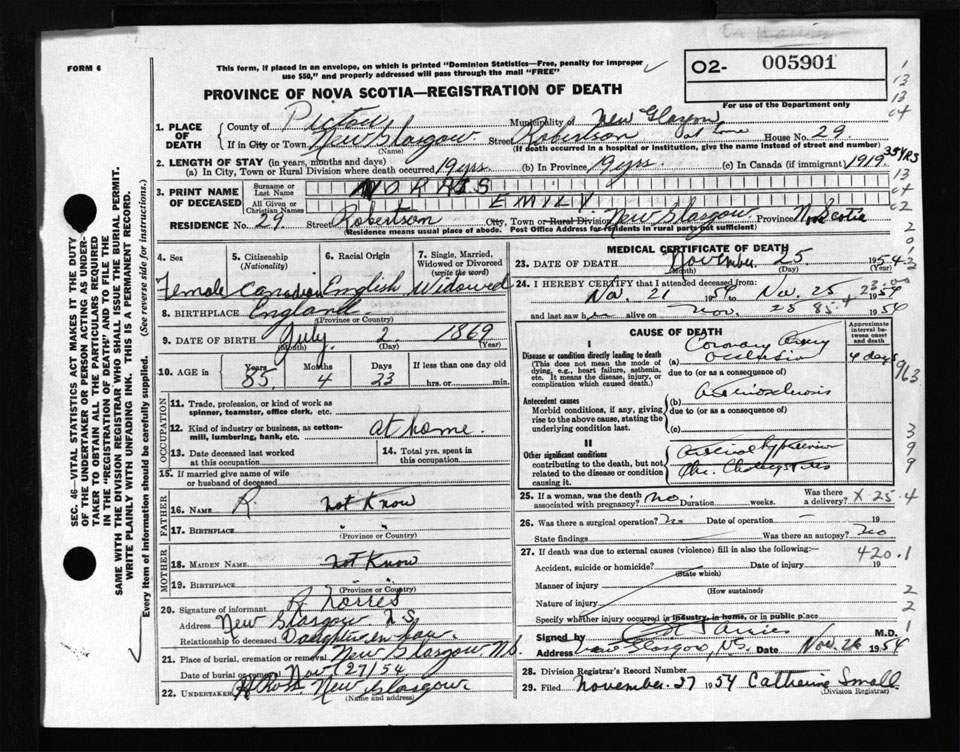 FORM 6
This form, if placed in an envelope, on which is printed "Dominion Statistics—Free, penalty for improper
use $50," and properly addressed will pass through the mail "FREE"
PROVINCE OF NOVA SCOTIA—REGISTRATION OF DEATH
O2- 005901
For use of the Department only
1. PLACE OF DEATH
County of Pictou Municipality of New Glasgow
If in City or Town New Glasgow (Name) Street Robertson at home House No. 29
(If death occurred in a hospital or institution, give the name instead of street and number)
2. LENGTH OF STAY (in years, months and days)
(a) In City, Town or Rural Division where death occurred 19 yrs. (b) In Province 19 yrs. (c) In Canada (if immigrant) 1919 35 YRS
3. PRINT NAME OF DECEASED
Surname or Last Name NORRIS
All Given or Christian Names EMILY
RESIDENCE No. 29. Street Robertson City, Town or Rural Division New Glasgow Province N. Scotia
(Residence means usual place of abode. Post Office Address for residents in rural parts not sufficient)
4. Sex
Female
5. Citizenship (Nationality)
Canadian
6. Racial Origin
English
7. Single, Married, Widowed or Divorced (write the word)
Widowed
8. BIRTHPLACE England
(Province or Country)
9. DATE OF BIRTH July 2, 1869
(Month) (Day) (Year)
10. AGE in Years 85 Months 4 Days 23 If less than one day old hrs. or min.
OCCUPATION
11. Trade, profession, or kind of work as spinner, teamster, office clerk, etc.
12. Kind of industry or business, as cotton-mill, lumbering, bank, etc. at home.
13. Date deceased last worked at this occupation
14. Total yrs. spent in this occupation
15. If married give name of wife or husband of deceased
FATHER
16. Name R. not Know
17. Birthplace " "
(Province or Country)
MOTHER
18. Maiden Name not Know
19. Birthplace " "
(Province or Country)
20. Signature of informant R. Norris
Address New Glasgow N.S.
Relationship to deceased Daughter in law.
21. Place of burial, cremation or removal New Glasgow N.S.
Date of burial or removal Nov 27/54
22. Undertaker H Ross New Glasgow
(Name and address)
MEDICAL CERTIFICATE OF DEATH
23. DATE OF DEATH November 25 1954
(Month) (Day) (Year)
24. I HEREBY CERTIFY that I attended deceased from:
Nov. 21 1954 to Nov. 25 1954
and last saw her alive on Nov. 25 1954
CAUSE OF DEATH
Approximate interval between onset and death
I
Disease or condition directly leading to death
(This does not mean the mode of dying, e.g., heart failure, asthenia, etc. It means the disease, injury, or complication which caused death.)
(a) Coronary Artery Occlusion 4 days
due to (or as a consequence of)
Antecedent causes
Morbid conditions, if any, giving rise to the above cause, stating the underlying condition last.
(b) Arteriosclerosis
due to (or as a consequence of)
(c)
II
Other significant conditions contributing to the death, but not related to the disease or condition causing it.
25. If a woman, was the death associated with pregnancy? no. Duration weeks. Was there a delivery?
26. Was there a surgical operation? No Date of operation – 19
State findings Was there an autopsy? No
27. If death was due to external causes (violence) fill in also the following:—
Accident, suicide or homicide? (State which) Date of injury 19
420.1
Manner of injury
(How sustained)
Nature of injury
Specify whether injury occurred in industry, in home, or in public place
Signed by M.D.
Address New Glasgow, N.S. Date Nov. 26 1954
28. Division Registrar's Record Number
29. Filed November 27 1954 Catherine Small
(Division Registrar)
SEC. 46—VITAL STATISTICS ACT MAKES IT THE DUTY OF THE UNDERTAKER OR PERSON ACTING AS UNDERTAKER TO OBTAIN ALL THE PARTICULARS REQUIRED IN THE "REGISTRATION OF DEATH" AND TO FILE THE SAME WITH THE DIVISION REGISTRAR WHO SHALL ISSUE THE BURIAL PERMIT.
WRITE PLAINLY WITH UNFADING INK. THIS IS A PERMANENT RECORD.
Every item of information should be carefully supplied. (See reverse side for instructions.)